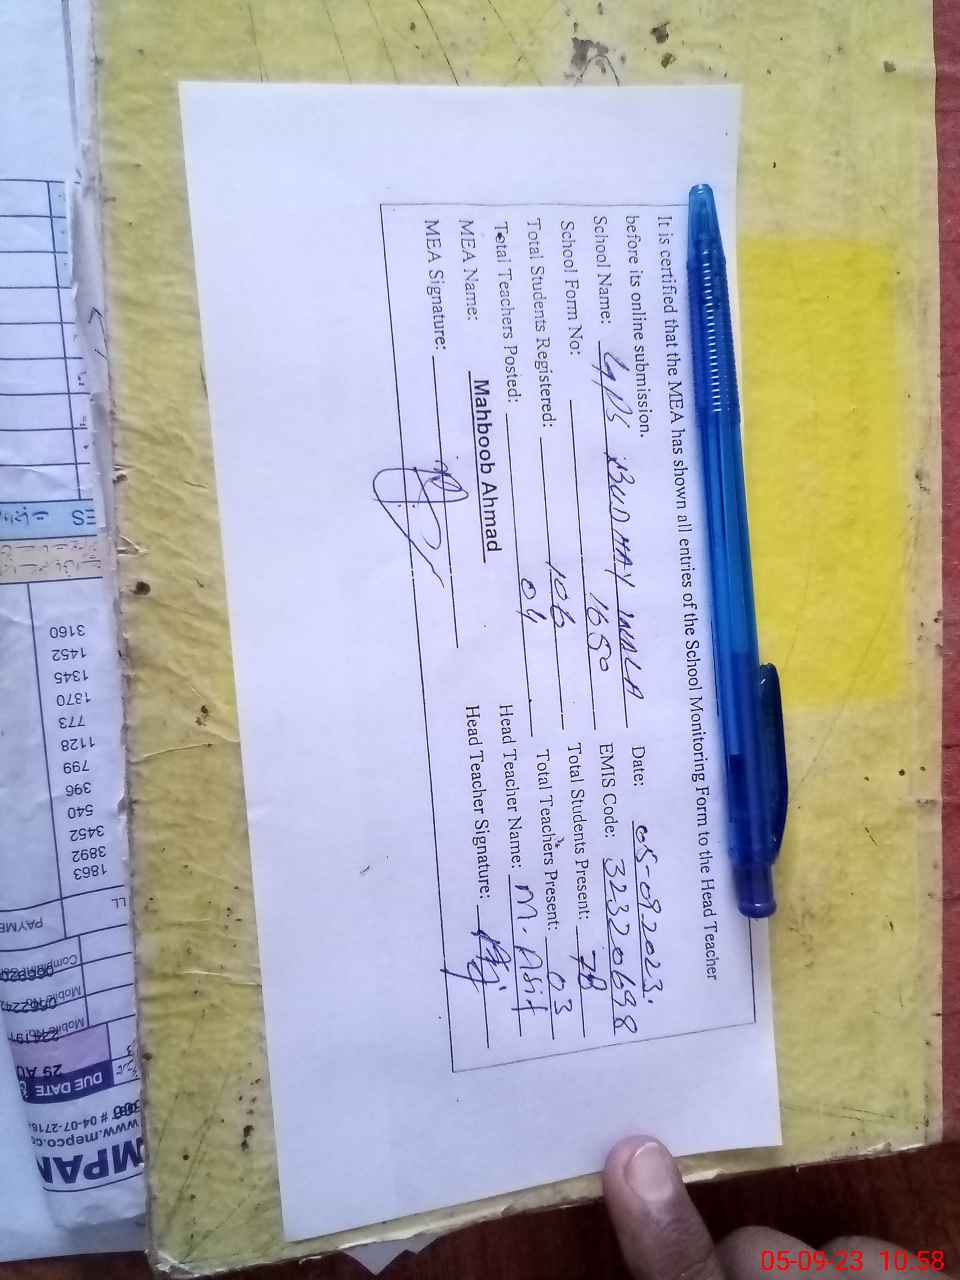 It is certified that the MEA has shown all entries of the School Monitoring Form to the Head Teacher
before its online submission.
School Name: GPS BUDHAY WALA Date: 05-09-2023
School Form No: 1650 EMIS Code: 32320698
Total Students Registered: 106 Total Students Present: 78
Total Teachers Posted: 04 Total Teachers Present: 03
MEA Name: Mahboob Ahmad Head Teacher Name: M. Asif
MEA Signature: Head Teacher Signature:
3160
1452
1345
1370
773
1128
799
396
540
3452
3892
1863
PAYME
DUE DATE
29 AU
www.mepco.co
MPAN
05-09-23 10:58